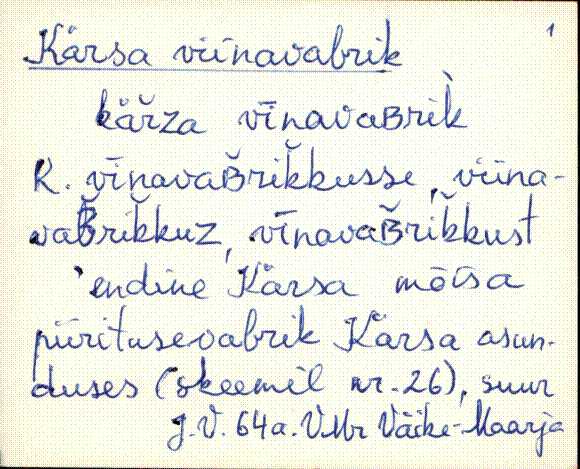 1
Kärsa viinavabrik
kär̆za vīnavaʙrik̀
K. vīnavaʙ̆rik̆kusse, viina-
vaʙ̆rik̆kuz, vīnavaʙ̆rik̆kust
'endine Kärsa mõisa
piiritusevabrik Kärsa asun-
duses (skeemil nr. 26), suur
J.V. 64a. VMr Väike-Maarja